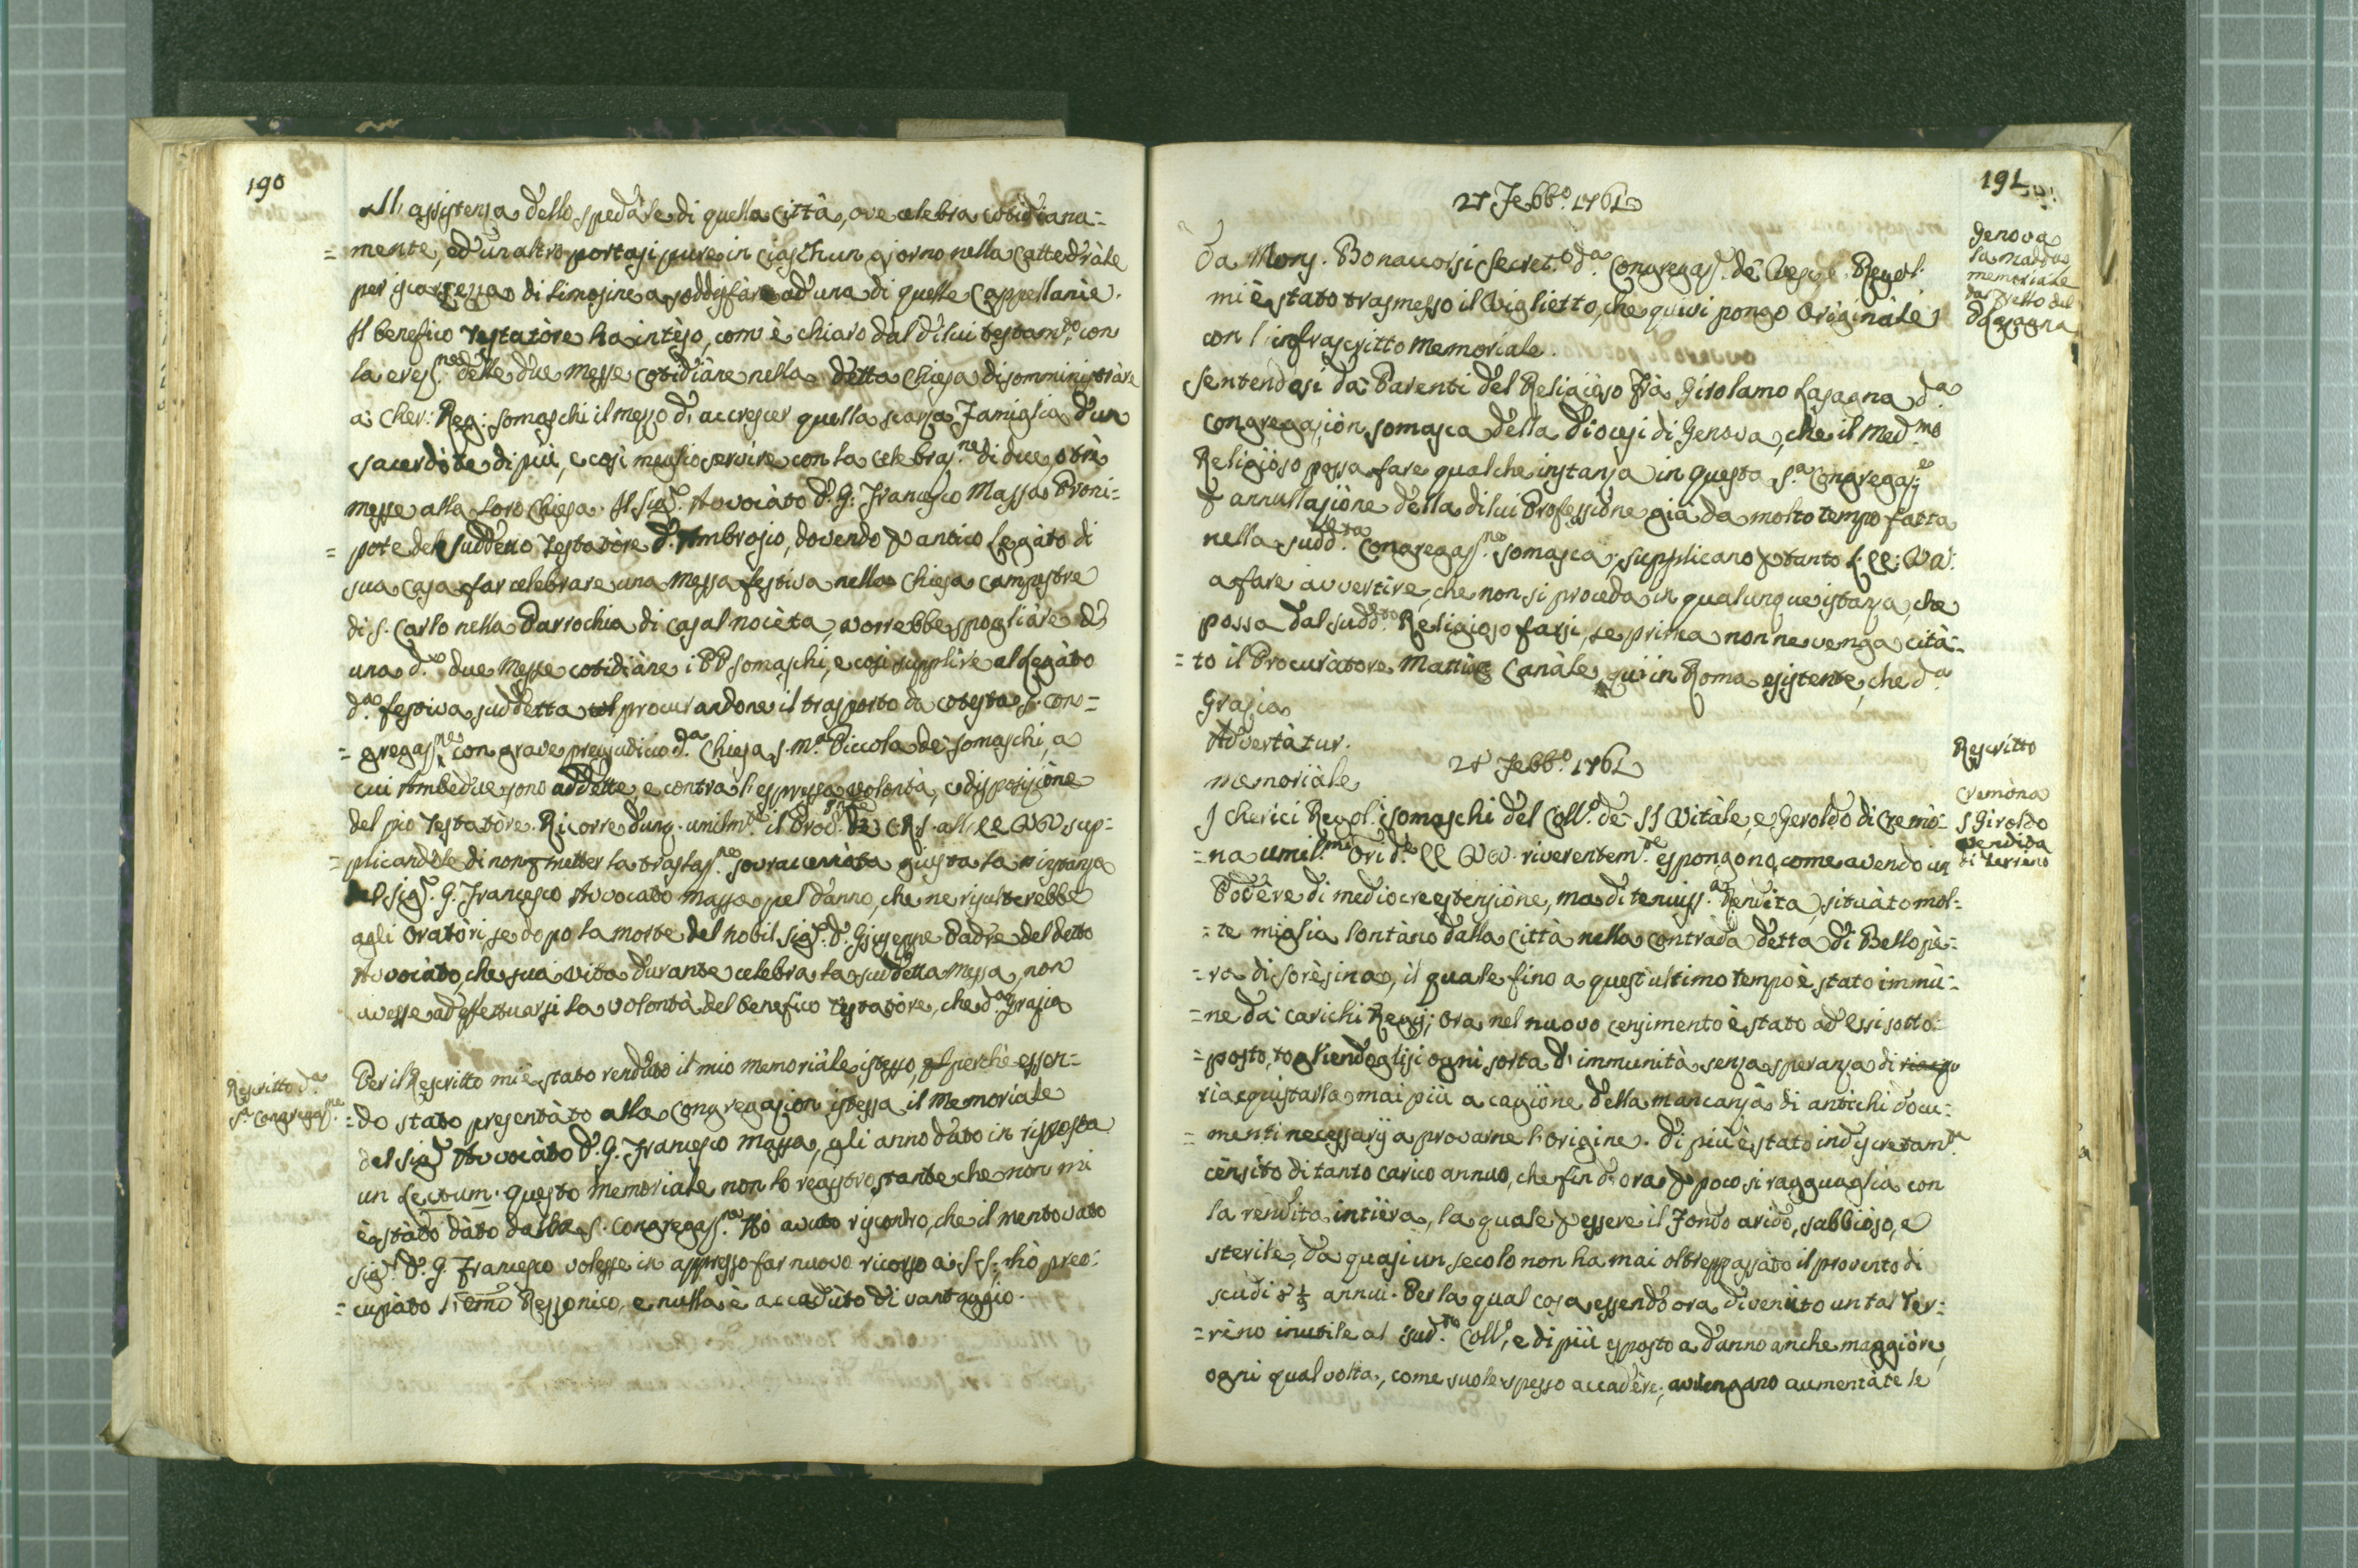 190
All' assistenza dello spedale di quella Città, ove celebra cotidiana=
=mente, ed un altro portasi pure in ciaschun giorno nella Cattedràle
per iscarsezza di limosine a soddisfare ad una di quelle Cappellanie.
Il benefico Testatòre ha intèso, com' è chiaro dal di lui testam.to, con
la erez.ne delle due Messe cotidiàne nella detta Chiesa di somministràre
a' Cher: Reg: Somaschi il mezzo d' accrescer quella scarsa Famiglia d' un
sacerdòte di più, e così meglio servire con la celebraz.ne di due
messe alla loro Chiesa. Il Sig.r Avvocàto D. G. Francesco Massa Proni=
=pote del suddetto Testatòre D. Ambrosio, dovendo p antico Legàto di
sua Casa far celebrare una Messa festiva nella Chiesa campestre
di S. Carlo nella Parrochia di Casalnocèta, vorrebbe spogliàre d'
una d.e due Messe cotidiàne i PP Somaschi, e così supplire al Legàto
d.a festiva suddetta col procurandone il trasporto da cotesta S. Con=
=gregaz.ne con grave pregiudicio d.a Chiesa S. M.a Piccola de' Somaschi, a
cui Ambedue sono addette, e contra l' espressa volontà, e disposiziòne
del pio Testatòre. Ricorre dunq. umilm.te il Proc. G.le de' CRS. all' EE VV sup=
=plicandole di non p metter la traslaz.ne sovraccennàta giusta la instanza
del Sig.r G. Francesco Avvocato Massa pel danno, che ne risulterebbe
agli Oratòri, se dopo la morte del nobil Sig.r D. Giuseppe Padre del detto
Avvocàto, che sua vita durante celebra la suddetta Messa, non
avesse ad effettuarsi la volontà del benefico Testatòre, che d.a Grazia
Rescritto d.a
S.a Congregaz.ne
Per il Rescritto mi è stato rendùto il mio memoriàle istesso, perchè essen=
=do stato presentàto alla Congregazion istessa il Memoriale
del Sig.r Avvocàto D. G. Francesco Massa, gli anno dato in risposta
un Lectum. Questo memoriale non lo registro stante che non mi
è stàto dàto dalla S. Congregaz.ne Hò avuto riscontro, che il mentovàto
Sig.r D. G. Francesco volesse in appresso far nuovo ricorso a S. S. hò preo=
=cupàto l' Emo Rezzonico, e nulla è accadùto di vantaggio.
191
27 Febb.o 1761
Genova
la Madd.a
memoriale
del
Lasagna
Da Mons. Bonaccorsi Secret.o d.a Congregaz. de' Vesc. e Regol.
mi è stato trasmesso il Viglietto, che quivi pongo Originàle
con l' infrascritto Memoriale.
Sentendosi da' Parenti del Religioso Frà Girolamo Lasagna d.a
Congregaziòn Somasca della Diocesi di Genova, che il Med.mo
Religiòso possa fare qualche instanza in questa S.a Congregaz.e
p annullaziòne della di lui Professiòne già da molto tempo fatta
nella sudd.ta Congregaz.ne Somasca; supplicano p tanto l' EE: VV:
a fare avvertire, che non si proceda in qualunque istanza, che
possa dal sudd.to Religioso farsi, se prima non ne venga cità=
=to il Procuratore Mattia Canàle, qui in Roma esistente, che d.a
Grazia
Advertàtur.
28 Febb.o 1761
Rescritto
Memoriàle
Cremona
S Giroldo
vendita
di terreno
I Cherici Regol. Somaschi del Coll.o de' SS Vitàle, e Geroldo di Cremò=
=na umil.mi Ori d.e EE VV. riverentem.te espongono, come avendo un
Podère di mediocre estensiòne, ma di tenuiss.a Rendita, situàto mol=
=te miglia lontàno dalla Città nella contrada detta di Bellopè=
=ra di Sorèsina, il quale fino a quest' ultimo tempo è stato immù=
=ne da' carichi Regij; ora nel nuovo censimento è stato ad essi sotto=
=posto, togliendoglisi ogni sorta d' immunità senza speranza di riacqu
riacquistarla mai più a cagiòne della mancanza di antichi docu=
=menti necessarij a provarne l' origine. Di più è stato indiscretam.te
cènsito di tanto carico annuo, che fin d' ora p poco si ragguaglia con
la rendita intièra, la quale p essere il Fondo arido, sabbiòso, e
sterile, da quasi un secolo non ha mai oltreppassàto il provento di
scudi 8 ½ annui. Per la qual cosa essendo ora divenùto un tal Ter=
=rèno inutile al sud.to Coll.o, e di più esposto a danno anche maggiòre,
ogni qual volta, come suole spesso accadère, avvengano aumentàte le